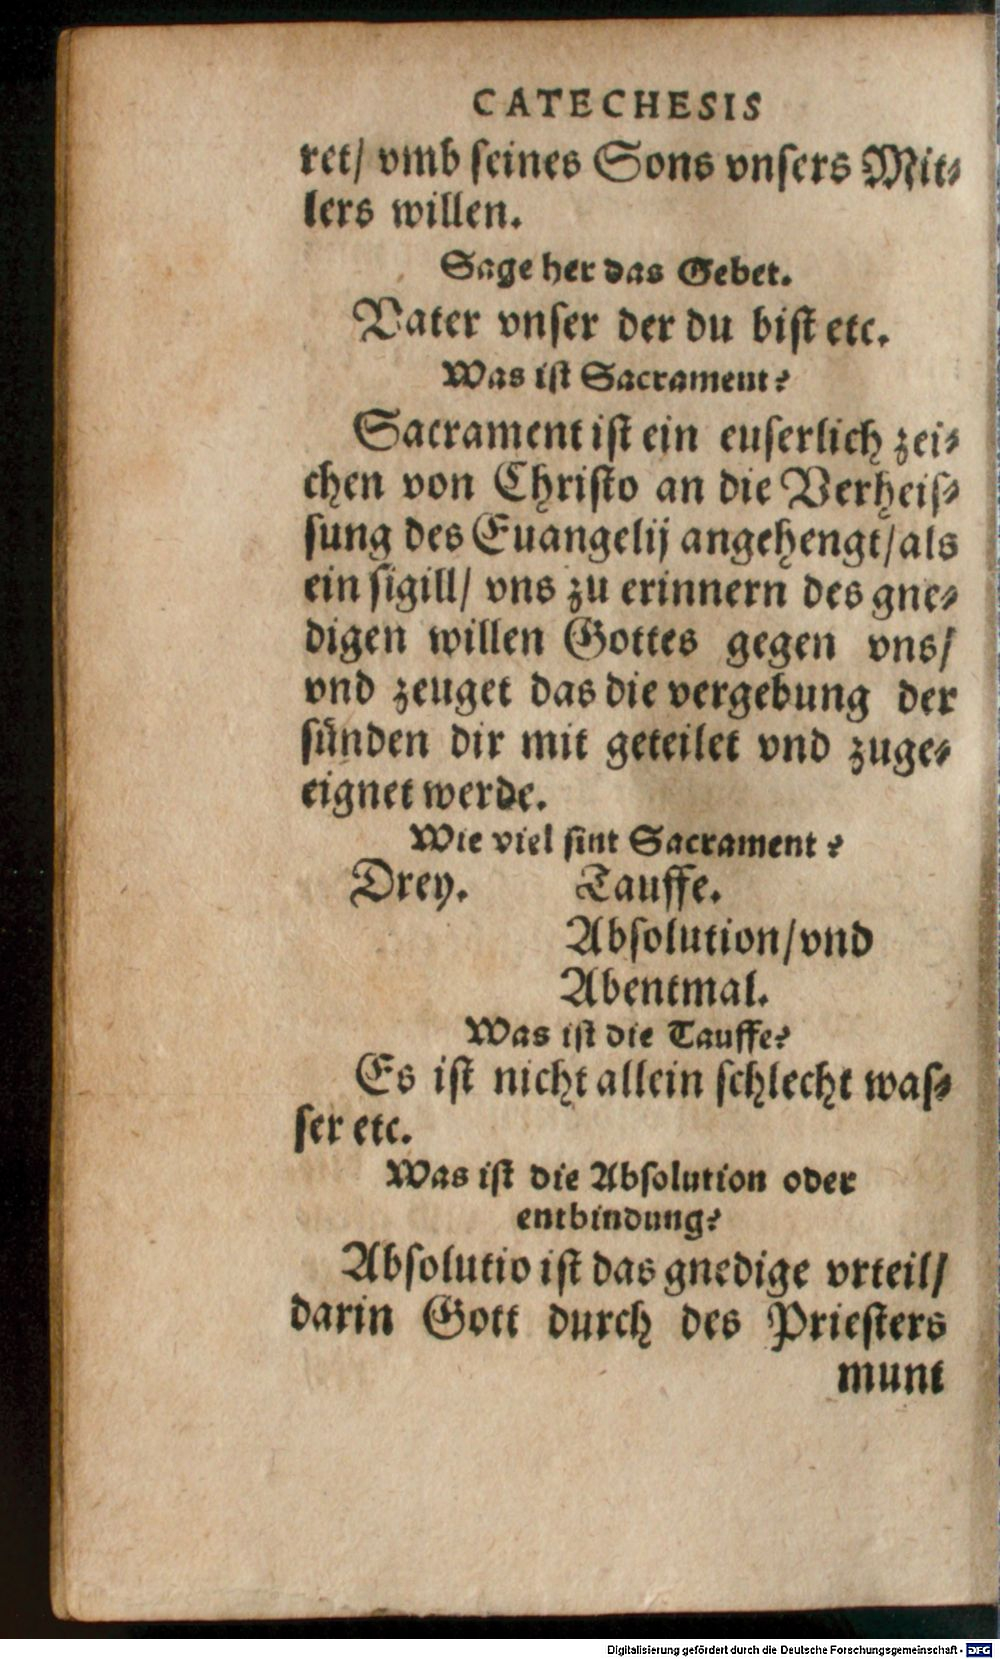 CATECHESIS
ret/ vmb seines Sons vnsers Mit-
lers willen.
Sage her das Gebet.
Vater vnser der du bist etc.
Was ist Sacrament?
Sacrament ist ein euserlich zei-
chen von Christo an die Verheis-
sung des Euangelij angehengt/als
ein sigill/ vns zu erinnern des gne-
digen willen Gottes gegen vns/
vnd zeuget das die vergebung der
sünden dir mit geteilet vnd zuge-
eignet werde.
Wie viel sint Sacrament?
Drey. Tauffe.
Absolution/vnd
Abentmal.
Was ist die Tauffe?
Es ist nicht allein schlecht was-
ser etc.
Was ist die Absolution oder
entbindung?
Absolutio ist das gnedige vrteil/
darin Gott durch des Priesters
munt
Digitalisierung gefördert durch die Deutsche Forschungsgemeinschaft - DFG